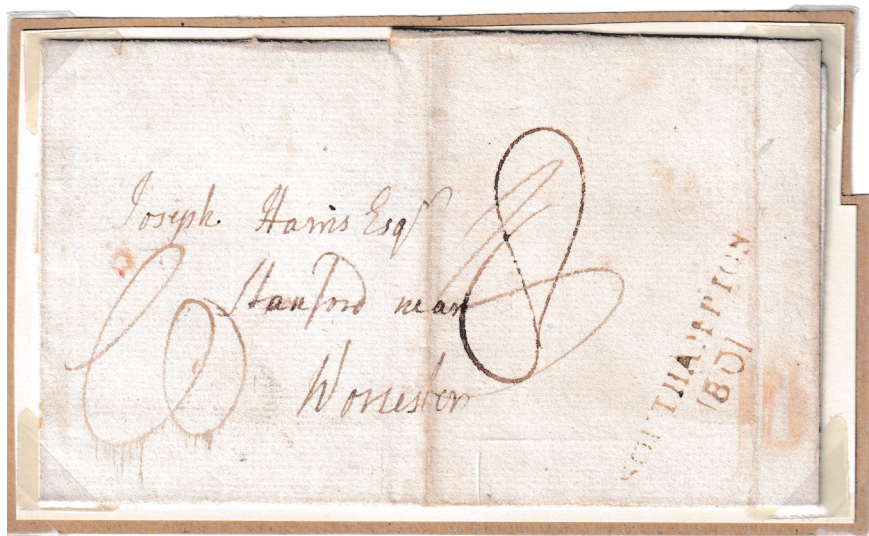 Joseph Harris Esqr
Stanford near
Worcester
8
SOUTHAMPTON
1801